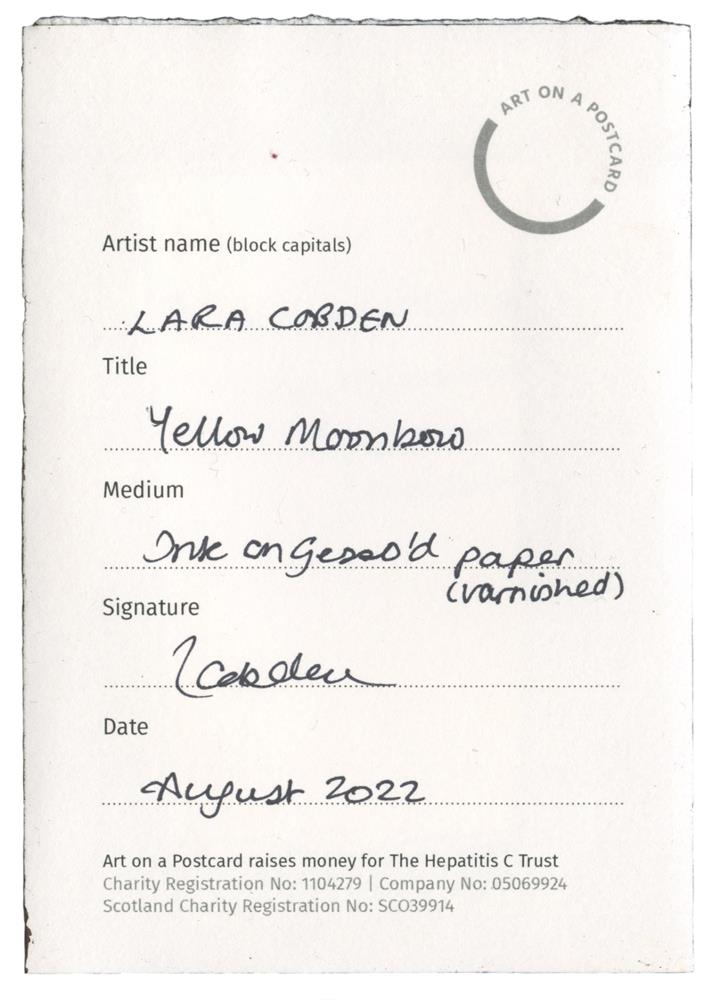 ART ON A POSTCARD
Artist name (block capitals)
LARA COBDEN
Title
Yellow Moonbow
Medium
Ink on Gesso'd paper
(varnished)
Signature
LCobden
Date
August 2022
Art on a Postcard raises money for The Hepatitis C Trust
Charity Registration No: 1104279 | Company No: 05069924
Scotland Charity Registration No: SCO39914